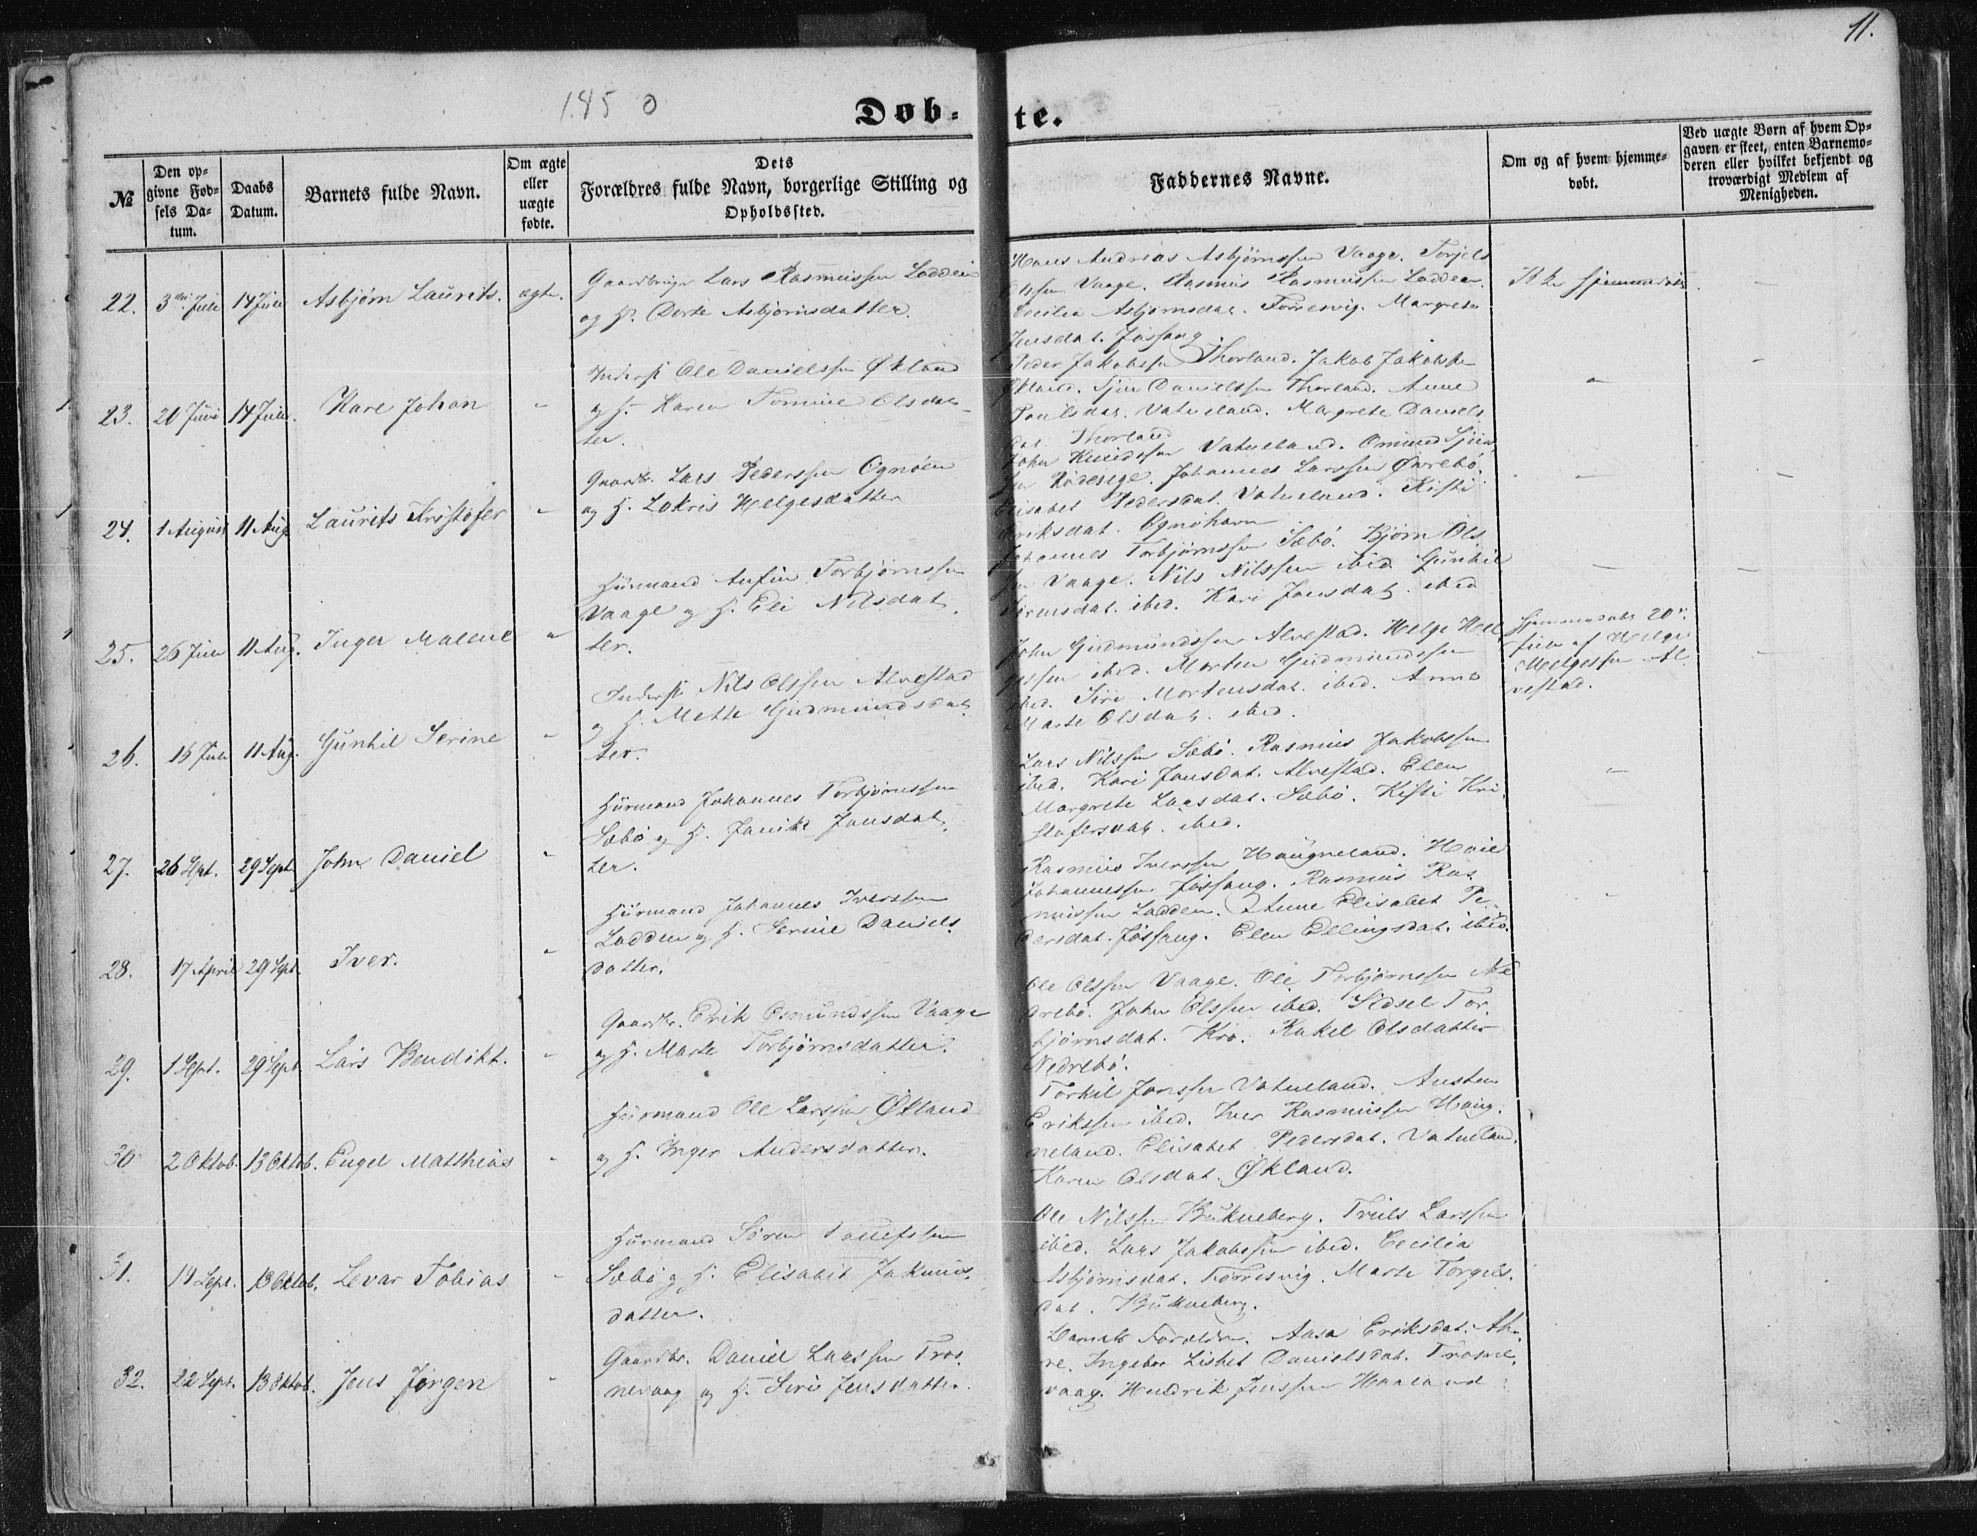 11.
1850
Døb-te.
№
Den opgivne Fødsels Datum.
Daabs Datum.
Barnets fulde Navn.
Om ægte eller uægte fødte.
Dets Forældres fulde Navn, borgerlige Stilling og Opholdssted.
Faddernes Navne.
Om og af hvem hjemmedøbt.
Ved uægte Børn af hvem Opgaven er skeet, enten Barnemoderen eller hvilket bekjendt og troværdigt Medlem af Menigheden.
22. 3die Juli 14 Juli Asbjørn Laurits. ægte.
Gaardbruger Lars Rasmussen Lodden
og H. Dorte Asbjørnsdatter.
Hans Andreas Asbjørnssen Vaage. Torjels
Olssen Vaage. Rasmus Rasmussen Lodden.
Cecilia Asbjørnsdat. Førresvig. Margrete
Jensdat. Jøsfang
Ikke hjemmedøbt. –
23. 20 Juni 14 Juli. Kare Johan –
Inderst Ole Danielssen Økland
og H. Karen Tomine Olsdat-
ter.
Peder Jakobssen Thorland. Jakob Jakobssen
Økland. Sjur Danielssen Thorland. Anne
Poulsdat. Vatneland. Margrete Daniels
dat. Thorland
24. 1 August 11 Aug. Laurits Kristofer –
Gaardbr. Lars Pederssen Ognøen
og H. Lokris Helgesdatter
John Knudssen Vatneland. Omund Sjur
Johannes Larssen Øvrebø.
Elisabet Pedersdat. Vatneland. Kisti
Eriksdat. Ognøhavn
25. 26 Juli 11 Aug. Inger Malene "
Huusmand Anfin Torbjørnssen
Vaage og H. Eli Nilsdat-
ter.
Johannes Torbjørnssen Sæbø. Bjørn Ols
sen Vaage. Nils Nilssen ibid. Gunhil
ibid. Kari Jonsdat. ibid
26. 15 Juli 11 Aug. Gunhil Serine –
Inderst Nils Olssen Alvestad
og H. Mette Gudmundsdat-
ter.
John Gudmundssen Alvestad. Helge Hel
gessen ibid. Morten Gudmundssen
ibid. Siri Mortensdat. ibid. Anne
Marte Olsdat. ibid.
Hjemmedøbt 20de
Juli af Helge
Helgessen Al
vestad.
27. 26 Sept. 29 Sept. John Daniel –
Huusmand Johannes Torbjørnssen
Sæbø og H. Janike Jonsdat-
ter.
Lars Nilssen Sæbø. Rasmus Jakobssen
ibid. Kari Jonsdat. Alvestad. Ellen
Margrete Larsdat. Sæbø. Kisti Kri
stofersdat. ibid.
28. 17 April 29 Sept. Iver. –
Huusmand Johannes Iverssen
Lodden og H. Serine Daniels-
datter.
Rasmus Iverssen Haugneland.
Johannessen Jøsfang. Rasmus Ras
mussen Lodden. Anne Elisabet Pe-
dersdat. Jøsfang. Ellen Ellingsdat. ibid.
29. 1 Sept. 29 Sept. Lars Bendikt. –
Gaardbr. Erik Osmundssen Vaage
og H. Marte Torbjørnsdatter.
Ole Olssen Vaage. Ole Torbjørnssen Ne
drebø. John Olssen ibid. Sidsel Tor-
bjørnsdat. Kro. Rakel Olsdatter
Nedrebø.
30 2 Oktob. 13 Oktob. Engel Matthias –
Huusmand Ole Larssen Økland
og H. Inger Andersdatter.
Torkil Jonssen Vatneland. Austen
Erikssen ibid. Iver Rasmussen Haug-
neland. Elisabet Pedersdat. Vatneland.
Karen Olsdat. Økland.
31. 19 Sept. 13 Oktob. Levar Tobias –
Huusmand Sören
Sæbø og H. Elisabet
datter.
Ole Nilssen Bukneberg. Truls Larssen
ibid. Lars Jakobssen ibid. Cecilia
Asbjørnsdat. Førresvig. Marte Torgels-
dat. Bukneberg.
32. 22 Sept. 13 Oktob. Jens Jørgen –
Gaardbr. Daniel Larssen Tros-
nevaag og H. Siri Jensdatter.
Barnets Forældre. Aasa Eriksdat.
Ingebor Lisbet Danielsdat. Trosne-
vaag. Hendrik Jenssen Haaland